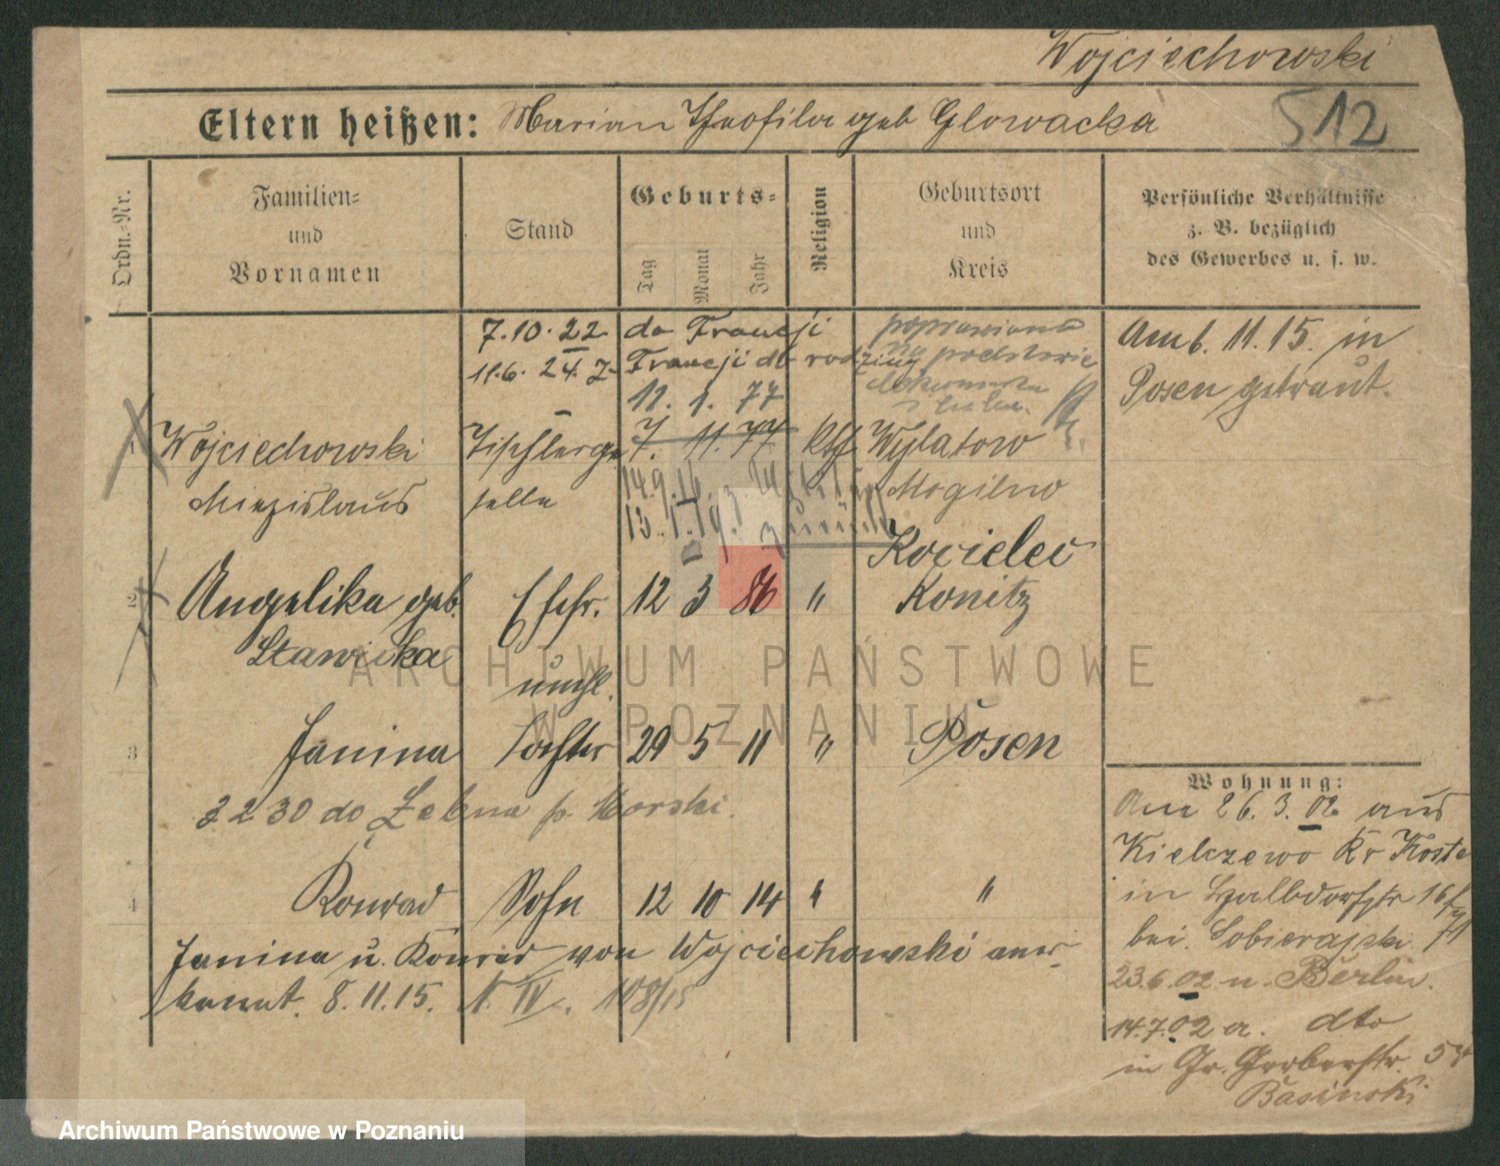 Wojciechowski
Eltern heißen: Marian Theofila geb Glowacka
512
Ordn.-Nr.
Familien-
und
Vornamen
Stand
Geburts-
Tag
Monat
Jahr
Religion
Geburtsort
und
Kreis
Persönliche Verhältnisse
z. B. bezüglich
des Gewerbes u. s. w.
7.10.22 do Francji
11.6.24. Z Francji do rodziny
poprawiono
na podstawie
dokumentu
11. 1. 77
Am 6. 11. 15. in
Posen getraut.
1 Wojciechowski Tischlerge 7. 11. 77 kth Wylatowo
Miezislaus selle Mogilno
14.9.16
13.1.19
zurück
Kocielec
2 Angelika geb. Ehefr. 12 3 86 " Konitz
Stawicka
3 Janina Tochter 29 5 11 " Posen
3 2 30 do Zelena p. Morski
4 Konrad Sohn 12 10 14 " "
Janina u. Konrad von Wojciechowski aner-
kannt. 8.11.15. N. IV. 108/15
Wohnung:
Am 26.3.02 aus
Kielczewo Kr Koste
in Halbdorfstr 16
bei Sobierajski
23.6.02 n. Berlin.
14.7.02 a. dto
in Gr. Gerberstr. 54
Basinski
ARCHIWUM PAŃSTWOWE
W POZNANIU
Archiwum Państwowe w Poznaniu